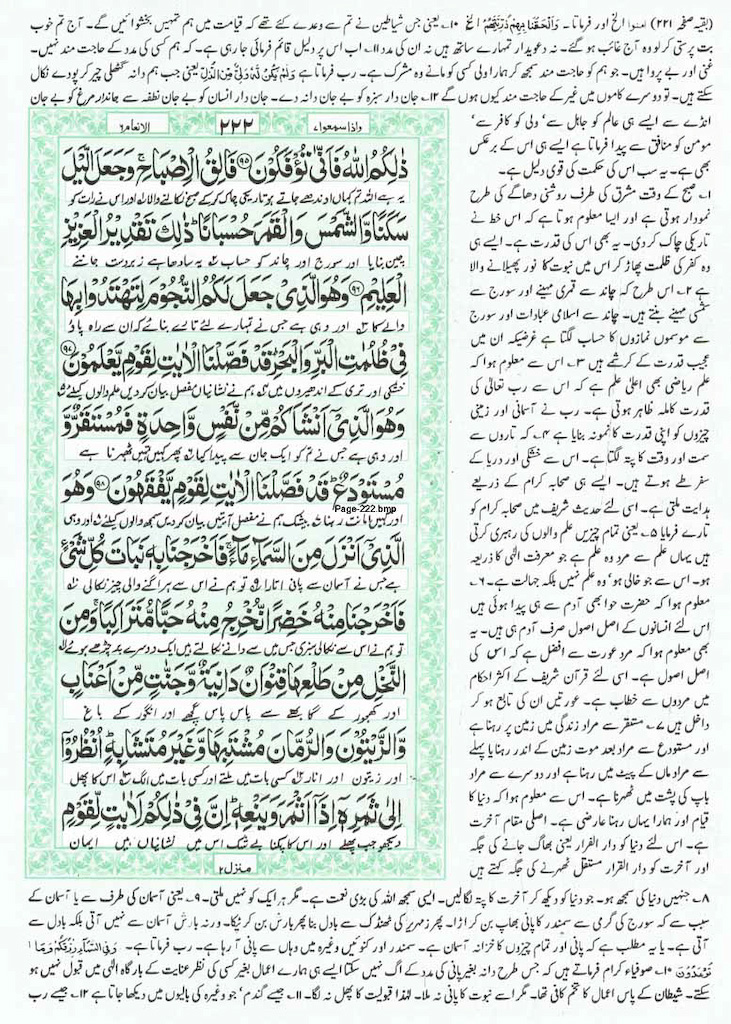 (بقیہ صفحہ ۲۲۱) امنوا الخ اور فرماتا۔ وَاَلْحَقْنَا بِهِمْ ذُرِّيَّتَهُمْ الخ ۱۰۔ یعنی جن شیاطین نے تم سے وعدے کئے تھے کہ قیامت میں ہم تمہیں بخشوائیں گے۔ آج تم خوب
بت پرستی کر لو وہ آج غائب ہو گئے۔ نہ وہ دعویدار تمہارے ساتھ ہیں نہ ان کی مدد ۱۱۔ اب اس پر دلیل قائم فرمائی جا رہی ہے۔ کہ ہم کسی کی مدد کے حاجت مند نہیں۔
غنی اور بے پروا ہیں۔ جو ہم کو حاجت مند سمجھ کر ہمارا ولی کسی کو مانے وہ مشرک ہے۔ رب فرماتا ہے وَلَمْ يَكُنْ لَّهٗ وَلِيٌّ مِّنَ الذُّلِّ یعنی جب ہم دانہ گٹھلی چیر کر پودے نکال
سکتے ہیں۔ تو دوسرے کاموں میں غیر کے حاجت مند کیوں ہوں گے ۱۲۔ جان دار سبزہ کو بے جان دانہ دے۔ جان دار انسان کو بے جان نطفہ سے جاندار مرغ کو بے جان
انڈے سے ایسے ہی عالم کو جاہل سے‘ ولی کو کافر سے‘
مومن کو منافق سے پیدا فرماتا ہے ایسے ہی اس کے برعکس
بھی ہے۔ یہ سب اس کی حکمت کی قوی دلیل ہے۔
۱۔ صبح کے وقت مشرق کی طرف روشنی دھاگے کی طرح
نمودار ہوتی ہے اور ایسا معلوم ہوتا ہے کہ اس خط نے
تاریکی چاک کر دی۔ یہ بھی اس کی قدرت ہے۔ ایسے ہی
وہ کفر کی ظلمت پھاڑ کر اس میں نبوت کا نور پھیلانے والا
ہے ۲۔ اس طرح کہ چاند سے قمری مہینے اور سورج سے
شمسی مہینے بنتے ہیں۔ چاند سے اسلامی عبادات اور سورج
سے موسموں نمازوں کا حساب لگتا ہے غرضیکہ ان میں
عجیب قدرت کے کرشمے ہیں ۳۔ اس سے معلوم ہوا کہ
علم ریاضی بھی اعلیٰ علم ہے کہ اس سے رب تعالیٰ کی
قدرت کاملہ ظاہر ہوتی ہے۔ رب نے آسمانی اور زمینی
چیزوں کو اپنی قدرت کا نمونہ بنایا ہے ۴۔ کہ تاروں سے
سمت اور وقت کا پتہ لگتا ہے۔ اس سے خشکی اور دریا کے
سفر طے ہوتے ہیں۔ ایسے ہی صحابہ کرام کے ذریعے
ہدایت ملتی ہے۔ اسی لئے حدیث شریف میں صحابہ کرام کو
تارے فرمایا ۵۔ یعنی تمام چیزیں علم والوں کی رہبری کرتی
ہیں یہاں علم سے مراد وہ علم ہے جو معرفت الٰہی کا ذریعہ
ہو۔ اس سے جو خالی ہو‘ وہ علم نہیں بلکہ جہالت ہے۔ ۶۔
معلوم ہوا کہ حضرت حوا بھی آدم سے ہی پیدا ہوئی ہیں
اس لئے انسانوں کے اصل اصول صرف آدم ہی ہیں۔ یہ
بھی معلوم ہوا کہ مرد عورت سے افضل ہے کہ اس کی
اصل اصول ہے۔ اسی لئے قرآن شریف کے اکثر احکام
میں مردوں سے خطاب ہے۔ عورتیں ان کی تابع ہو کر
داخل ہیں ۷۔ مستقر سے مراد زندگی میں زمین پر رہنا ہے
اور مستودع سے مراد بعد موت زمین کے اندر رہنا یا پہلے
سے مراد ماں کے پیٹ میں رہنا ہے اور دوسرے سے مراد
باپ کی پشت میں ٹھہرنا ہے۔ اس سے معلوم ہوا کہ دنیا کا
قیام اور ہمارا یہاں رہنا عارضی ہے۔ اصلی مقام آخرت
ہے۔ اس لئے دنیا کو دار الفرار یعنی بھاگ جانے کی جگہ
اور آخرت کو دار القرار مستقل ٹھہرنے کی جگہ کہتے ہیں
واذا سمعوا ۷
۲۲۲
الانعام ۶
ذٰلِكُمُ اللّٰهُ فَاَنّٰى تُؤْفَكُوْنَ ۹۵ فَالِقُ الْاِصْبَاحِ ۚ وَجَعَلَ الَّيْلَ
یہ ہے اللہ تم کہاں اوندھے جاتے ہو تاریکی چاک کر کے صبح نکالنے والا ۱ اور اس نے رات کو
سَكَنًا وَّالشَّمْسَ وَالْقَمَرَ حُسْبَانًا ؕ ذٰلِكَ تَقْدِيْرُ الْعَزِيْزِ
چین بنایا اور سورج اور چاند کو حساب ۲ یہ سادھا ہے زبردست جاننے
الْعَلِيْمِ ۹۶ وَهُوَ الَّذِيْ جَعَلَ لَكُمُ النُّجُوْمَ لِتَهْتَدُوْا بِهَا
والے کا ۳ اور وہی ہے جس نے تمہارے لئے تارے بنائے کہ ان سے راہ پاؤ
فِيْ ظُلُمٰتِ الْبَرِّ وَالْبَحْرِ ؕ قَدْ فَصَّلْنَا الْاٰيٰتِ لِقَوْمٍ يَّعْلَمُوْنَ ۹۷
خشکی اور تری کے اندھیروں میں ۴ ہم نے نشانیاں مفصل بیان کر دیں علم والوں کیلئے ۵
وَهُوَ الَّذِيْ اَنْشَاَكُمْ مِّنْ نَّفْسٍ وَّاحِدَةٍ فَمُسْتَقَرٌّ وَّ
اور وہی ہے جس نے تم کو ایک جان سے پیدا کیا ۶ پھر کہیں تمہیں ٹھہرنا ہے
مُسْتَوْدَعٌ ؕ قَدْ فَصَّلْنَا الْاٰيٰتِ لِقَوْمٍ يَّفْقَهُوْنَ ۹۸ وَهُوَ
اور کہیں امانت رہنا ۷ بیشک ہم نے مفصل آیتیں بیان کر دیں سمجھ والوں کیلئے ۸ اور وہی
Page-222.bmp
الَّذِيْٓ اَنْزَلَ مِنَ السَّمَآءِ مَآءً ۚ فَاَخْرَجْنَا بِهٖ نَبَاتَ كُلِّ شَيْءٍ
ہے جس نے آسمان سے پانی اتارا ۹ تو ہم نے اس سے ہر اگنے والی چیز نکالی ۱۰
فَاَخْرَجْنَا مِنْهُ خَضِرًا نُّخْرِجُ مِنْهُ حَبًّا مُّتَرَاكِبًا ۚ وَمِنَ
تو ہم نے اس سے نکالی سبزی جس میں سے دانے نکالتے ہیں ایک دوسرے پر چڑھے ہوئے ۱۱
النَّخْلِ مِنْ طَلْعِهَا قِنْوَانٌ دَانِيَةٌ وَّجَنّٰتٍ مِّنْ اَعْنَابٍ
اور کھجور کے گابھے سے پاس پاس گچھے اور انگور کے باغ
وَّالزَّيْتُوْنَ وَالرُّمَّانَ مُشْتَبِهًا وَّغَيْرَ مُتَشَابِهٍ ؕ اُنْظُرُوْٓا
اور زیتون اور انار کسی بات میں ملتے اور کسی بات میں الگ ۱۲ اس کا پھل
اِلٰى ثَمَرِهٖٓ اِذَآ اَثْمَرَ وَيَنْعِهٖ ؕ اِنَّ فِيْ ذٰلِكُمْ لَاٰيٰتٍ لِّقَوْمٍ
دیکھو جب پھلے اور اس کا پکنا بے شک اس میں نشانیاں ہیں ایمان
منزل ۲
۸۔ جنہیں دنیا کی سمجھ ہو۔ جو دنیا کو دیکھ کر آخرت کا پتہ لگالیں۔ ایسی سمجھ اللہ کی بڑی نعمت ہے۔ مگر ہر ایک کو نہیں ملتی۔ ۹۔ یعنی آسمان کی طرف سے یا آسمان کے
سبب سے کہ سورج کی گرمی سے سمندر کا پانی بھاپ بن کر اڑا۔ پھر زمہریر کی ٹھنڈک سے بادل بنا پھر بارش بن کر ٹپکا۔ ورنہ بارش آسمان سے نہیں آتی بلکہ بادل سے
آتی ہے۔ یا یہ مطلب ہے کہ پانی اور تمام چیزوں کا خزانہ آسمان ہے۔ سمندر اور کنوئیں وغیرہ میں وہاں سے پانی آ رہا ہے۔ رب فرماتا ہے۔ وَفِي السَّمَآءِ رِزْقُكُمْ وَمَا
تُوْعَدُوْنَ ۱۰۔ صوفیاء کرام فرماتے ہیں کہ جس طرح دانہ بغیر پانی کی مدد کے اگ نہیں سکتا ایسے ہی ہمارے اعمال بغیر کسی کی نظر عنایت کے بارگاہ الٰہی میں قبول نہیں ہو
سکتے۔ شیطان کے پاس اعمال کا تخم کافی تھا۔ مگر اسے نبوت کا پانی نہ ملا۔ لہٰذا قبولیت کا پھل نہ لگا۔ ۱۱۔ جیسے گندم‘ جو وغیرہ کی بالیوں میں دیکھا جاتا ہے ۱۲۔ جیسے رب